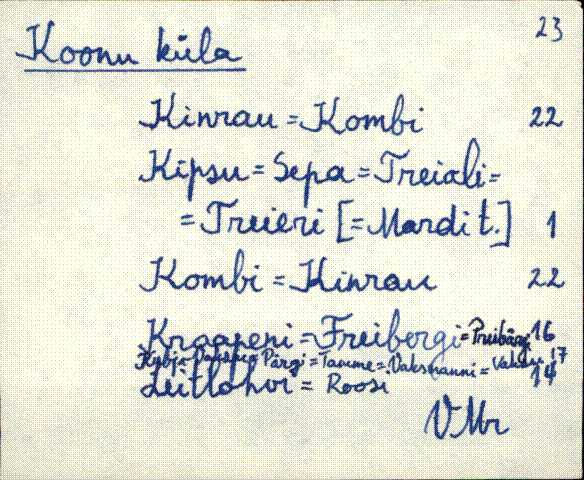 23
Koonu küla
Kinrau = Kombi 22
Kipsu = Sepa = Treiali =
= Treieri [= Mardi t.] 1
Kombi = Kinrau 22
Knaapeni = Freibergi = Preibärgi 16
Pärgi = Tamme = Vaksmanni = 17
Leitlohvi = Roosi 14
V Mr